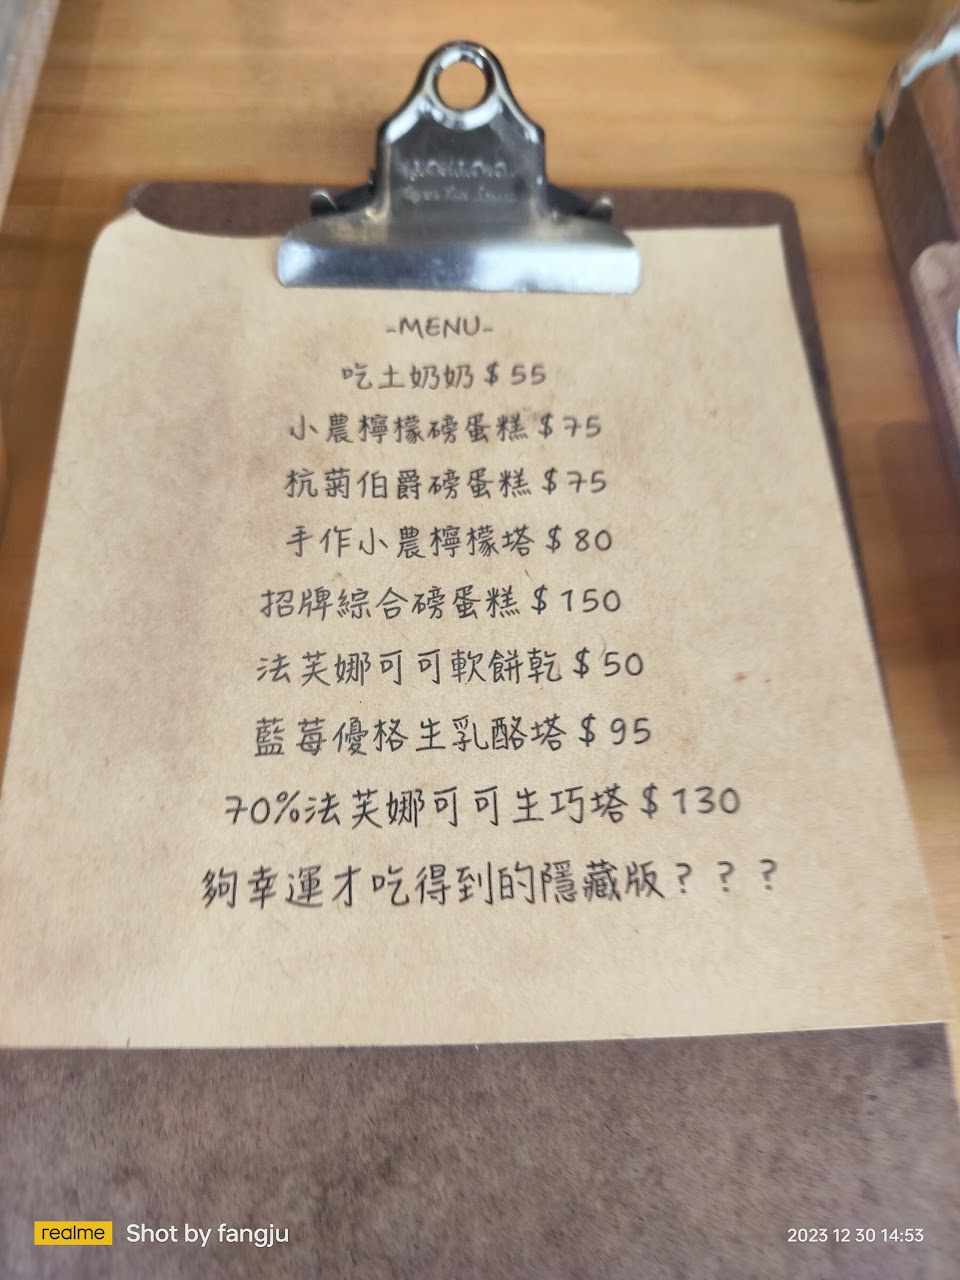 -MENU-
吃土奶奶 $ 55
小農檸檬磅蛋糕 $ 75
杭菊伯爵磅蛋糕 $ 75
手作小農檸檬塔 $ 80
招牌綜合磅蛋糕 $ 150
法芙娜可可軟餅乾 $ 50
藍莓優格生乳酪塔 $ 95
70%法芙娜可可生巧塔 $ 130
夠幸運才吃得到的隱藏版? ? ?
realme Shot by fangju
2023 12 30 14:53